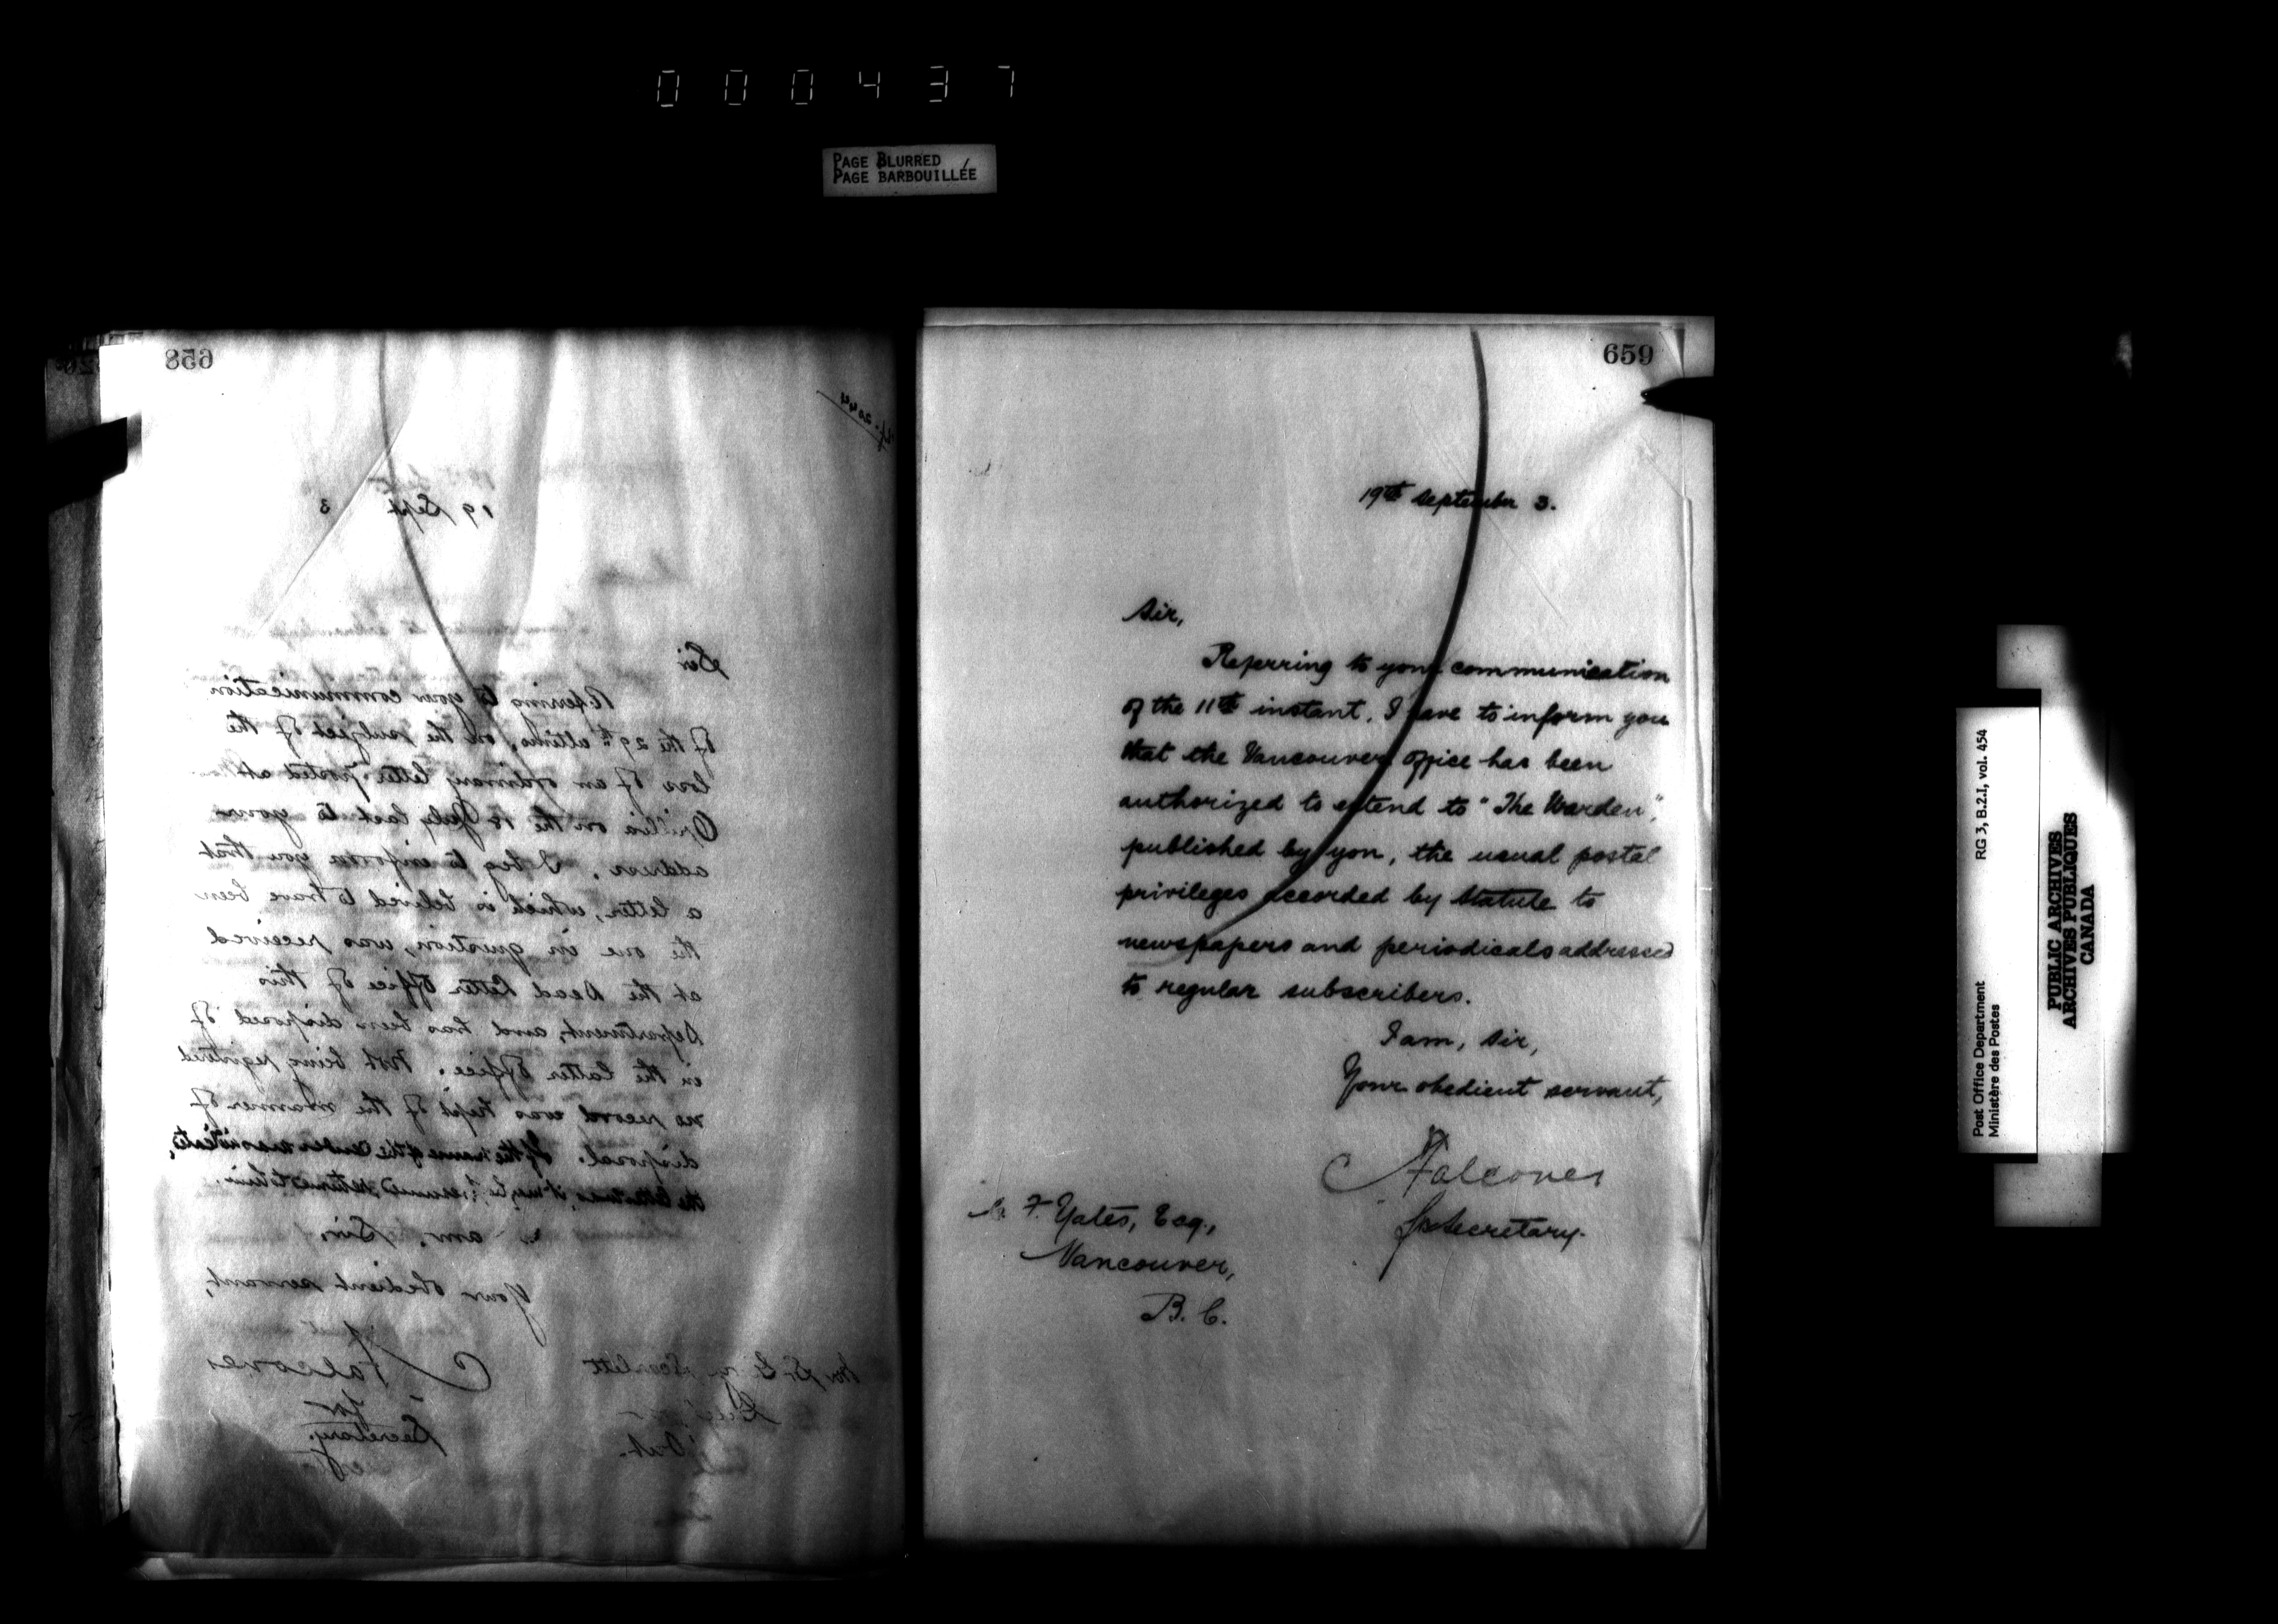 000437
PAGE BLURRED
PAGE BARBOUILLÉE
658
19 Sept 3
Sir
Referring to your communication
of the 29th ultimo, on the subject of the
loss of an ordinary letter posted at
Orillia on the 10 July last to your
address, I beg to inform you that
a letter, which is belived to have been
the one in question, was received
at the Dead Letter Office of this
Department, and has been disposed of
in the latter Office. Not being registered
no record was kept of the manner of
disposal. If the name of the sender was indicated,
the letter was, it may be presumed, returned to him.
am, Sir,
Your obedient servant,
Falconer
for
Secretary.
Scarlett
Ont.
659
19th September 3.
Sir,
Referring to your communication
of the 11th instant, I have to inform you
that the Vancouver Office has been
authorized to extend to "The Warden",
published by you, the usual postal
privileges accorded by Statute to
newspapers and periodicals addressed
to regular subscribers.
I am, Sir,
Your obedient servant,
Falconer
for Secretary.
F. Yates, Esq.,
Vancouver,
B. C.
Post Office Department
Ministère des Postes
RG 3, B.2.I, vol. 454
PUBLIC ARCHIVES
ARCHIVES PUBLIQUES
CANADA